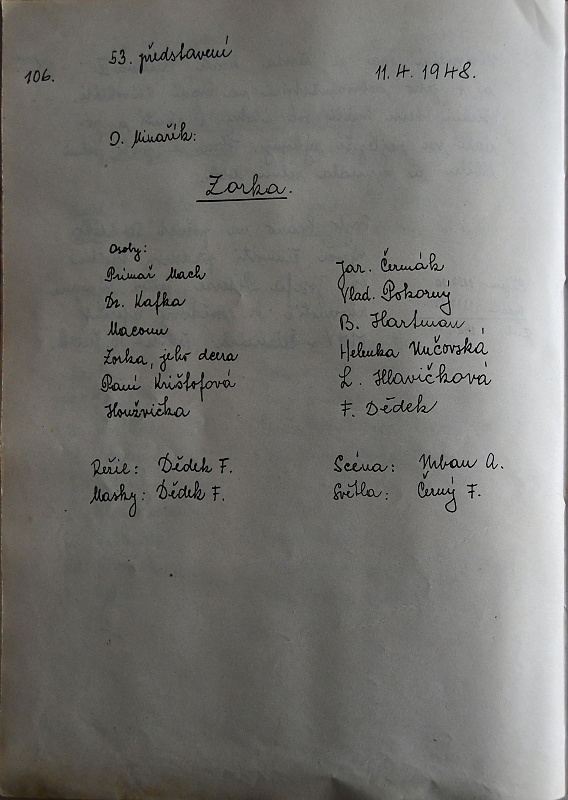 53. představení
106. 11.4.1948.
O. Minařík:
Zorka.
Osoby:
Primář Mach Jar. Čermák
Dr. Kafka Vlad. Pokorný
Macoun B. Hartman.
Zorka, jeho dcera Helenka Kučovská
Paní Krištofová L. Hlavičková
Houžvička F. Dědek
Režie: Dědek F. Scéna: Urban A.
Masky: Dědek F. Světla: Černý F.